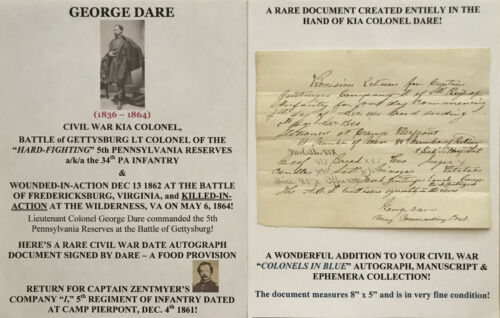 GEORGE DARE
(1836 – 1864)
CIVIL WAR KIA COLONEL,
BATTLE of GETTYSBURG LT COLONEL OF THE
“HARD-FIGHTING” 5th PENNSYLVANIA RESERVES
a/k/a the 34th PA INFANTRY
&
WOUNDED-IN-ACTION DEC 13 1862 AT THE BATTLE
OF FREDERICKSBURG, VIRGINIA, and KILLED-IN-
ACTION AT THE WILDERNESS, VA ON MAY 6, 1864!
Lieutenant Colonel George Dare commanded the 5th
Pennsylvania Reserves at the Battle of Gettysburg!
HERE’S A RARE CIVIL WAR DATE AUTOGRAPH
DOCUMENT SIGNED BY DARE – A FOOD PROVISION
RETURN FOR CAPTAIN ZENTMYER’S
COMPANY “I,” 5th REGIMENT OF INFANTRY DATED
AT CAMP PIERPONT, DEC. 4th 1861!
A RARE DOCUMENT CREATED ENTIELY IN THE
HAND OF KIA COLONEL DARE!
Provision Return for Captain
Company I of 5th
Infantry for four days commencing
ending
Camp Pierpont
Beef Bread
George Dare
Commanding Post
A WONDERFUL ADDITION TO YOUR CIVIL WAR
“COLONELS IN BLUE” AUTOGRAPH, MANUSCRIPT &
EPHEMERA COLLECTION!
The document measures 8” x 5” and is in very fine condition!